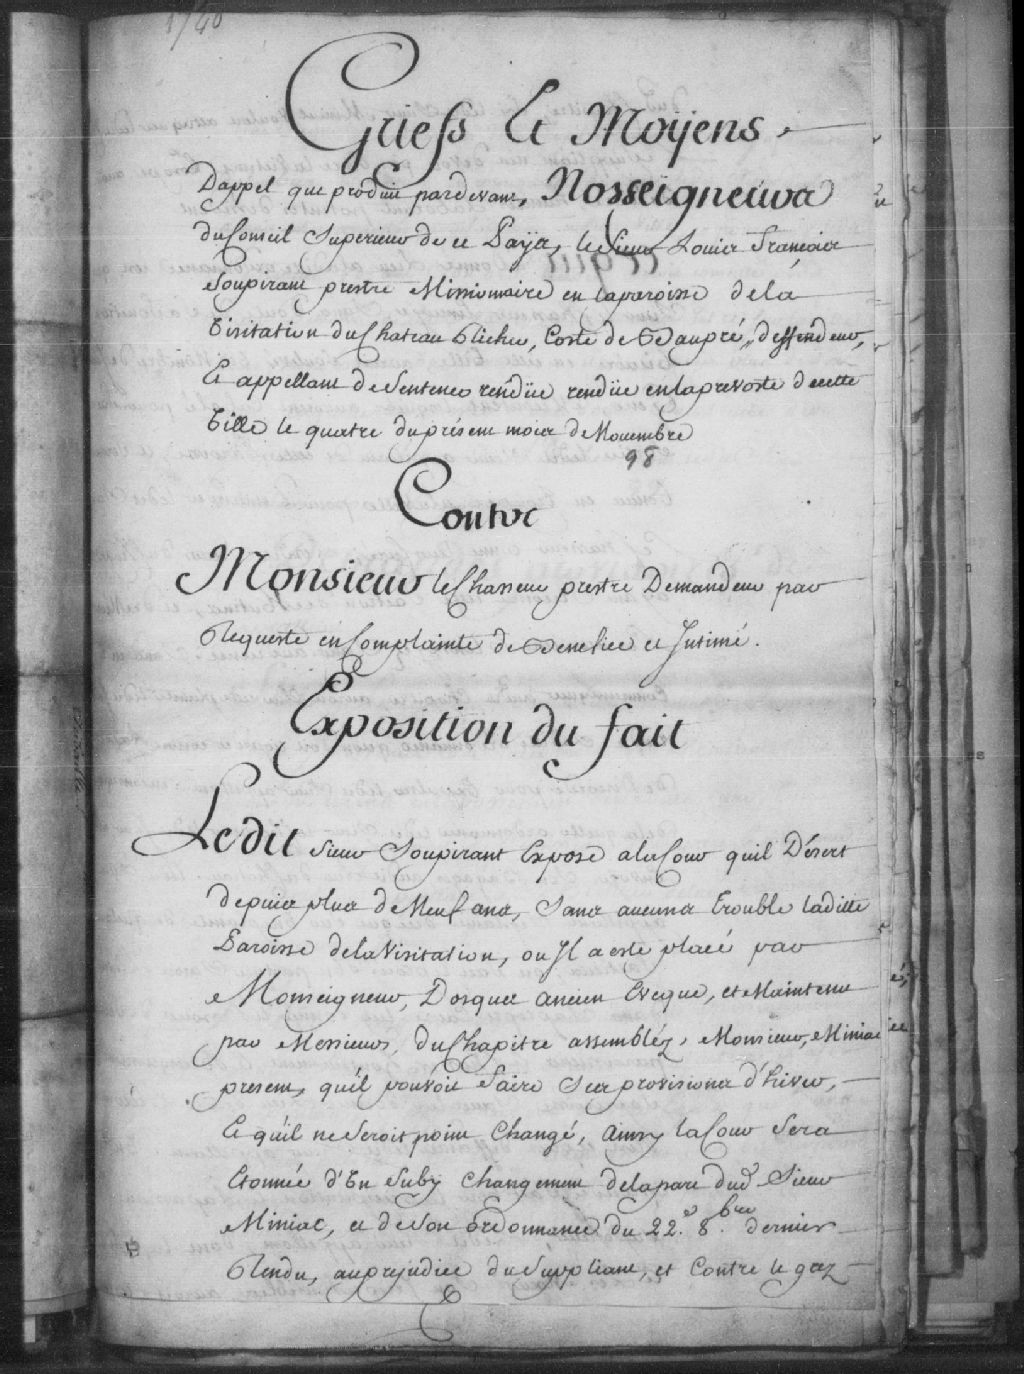 1740
Griefs Et Moÿens
Dappel que produit pardevant, Nosseigneurs
du Conseil Superieur de ce Païs, le Sieur Louis François
Soupirant prestre Missionnaire en la paroisse de la
Visitation du Chateau Richer, Coste de Beaupré, deffendeur,
Et appellant de Sentence rendüe rendüe en la prevosté de cette
Ville le quatre du présent mois de Novembre
98
Contre
Monsieur le Chasseur prestre Demandeur par
Requeste en Complainte de Benefice et Intimé.
Exposition du fait
Ledit Sieur Soupirant Expose a la Cour quil Désert
depuis plus de Neuf ans, Sans aucuns trouble laditte
Paroisse de la Visitation, ou Il a esté placé par
Monseigneur, Dosquet ancien Evêque, et Maintenu
par Messieurs, du Chapitre assembléz, Monsieur, Miniac
present, quil pouvoit faire Ses provisions d'hiver,
Et quil ne Seroit point Changé, Ainsy la Cour Sera
Etonnée d'Un Suby Changement de la part dud. Sieur
Miniac, et de Son ordonnance du 22.e 8.bre dernier
Rendu, au prejudice du Suppliant, et Contre le grez